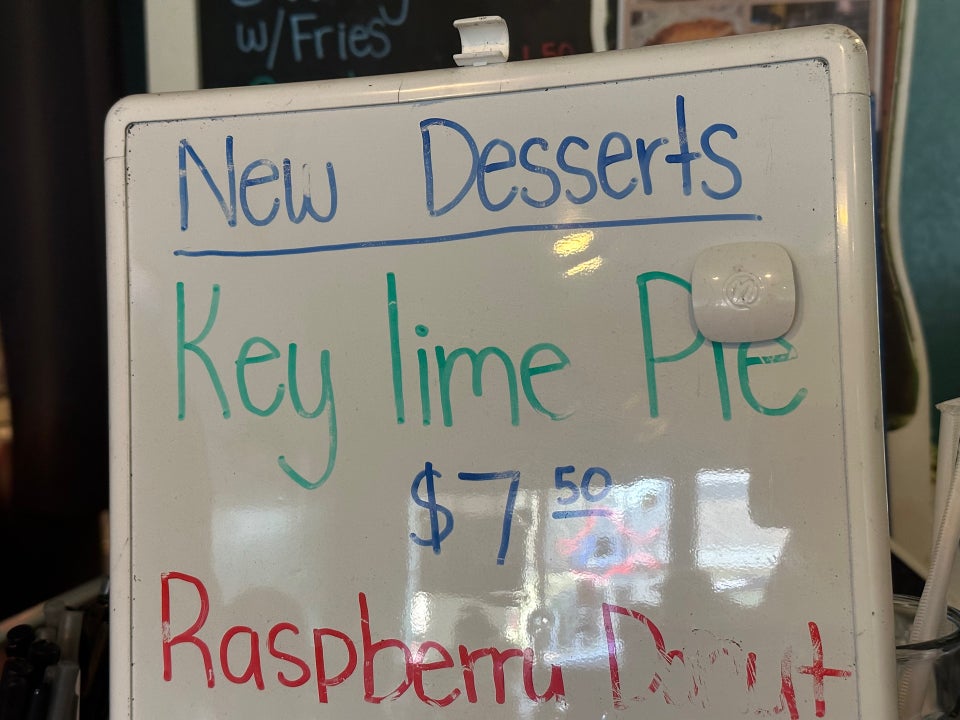 w/Fries
New Desserts
Key lime Pie
$7 50
Raspberry Donut